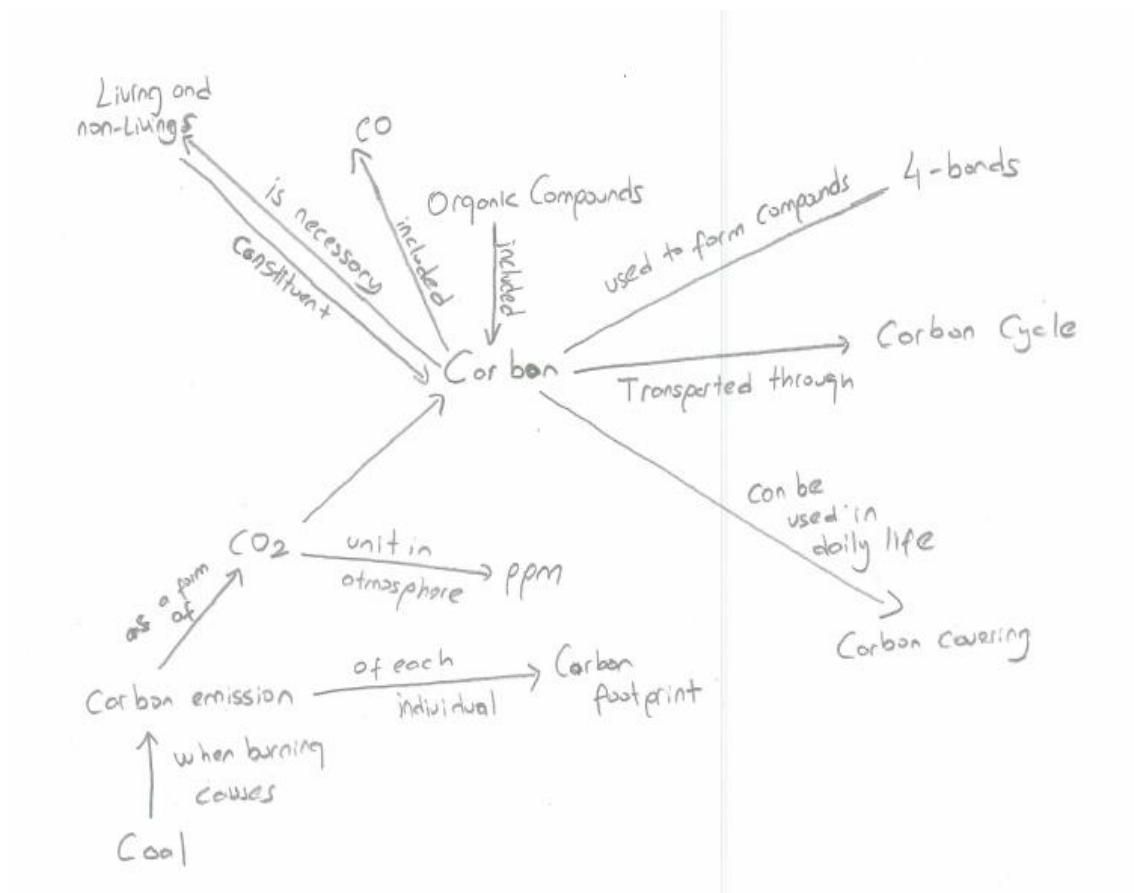 Living and
non-Livings
CO
is necessary
Constituent
included
Organic Compounds
included
used to form compounds
4-bonds
Carbon
Transported through
Carbon Cycle
can be
used in
daily life
Carbon covering
CO2
unit in
atmosphere
ppm
as a form
of
Carbon emission
of each
individual
Carbon
footprint
when burning
causes
Coal